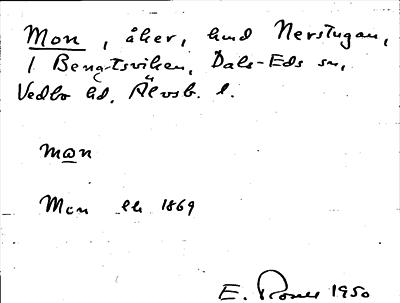 Mon, åker, hmd Nerstugan,
1 Bengtsviken, Dals-Eds sn,
Vedbo hd, Älvsb. l.
mωn
Mon 1869
E. 1950